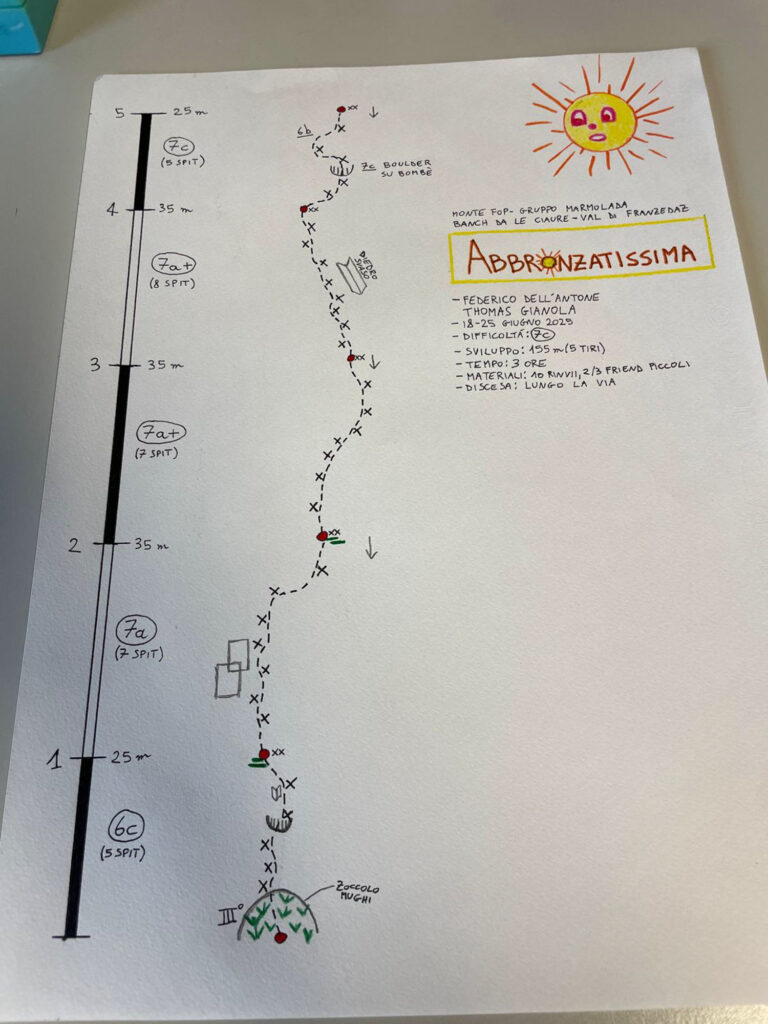 5 25 m
xx
6b
7c
(5 SPIT)
7c BOULDER
SU BOMBÈ
4 35 m
xx
MONTE FOP - GRUPPO MARMOLADA
BANCH DA LE CIAURE - VAL DI FRANZEDAZ
ABBRONZATISSIMA
7a+
(8 SPIT)
DIEDRO
SVASO
- FEDERICO DELL'ANTONE
THOMAS GIANOLA
- 18-25 GIUGNO 2025
- DIFFICOLTÁ: 7c
- SVILUPPO: 155 m (5 TIRI)
- TEMPO: 3 ORE
- MATERIALI: 10 RINVII, 2/3 FRIEND PICCOLI
- DISCESA: LUNGO LA VIA
3 35 m
xx
7a+
(7 SPIT)
2 35 m
xx
7a
(7 SPIT)
1 25 m
xx
6c
(5 SPIT)
ZOCCOLO
MUGHI
III°